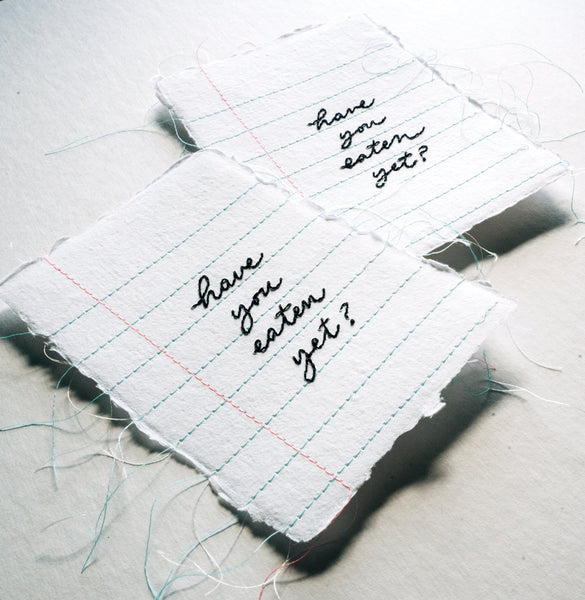 have
you
eaten
yet?
have
you
eaten
yet?